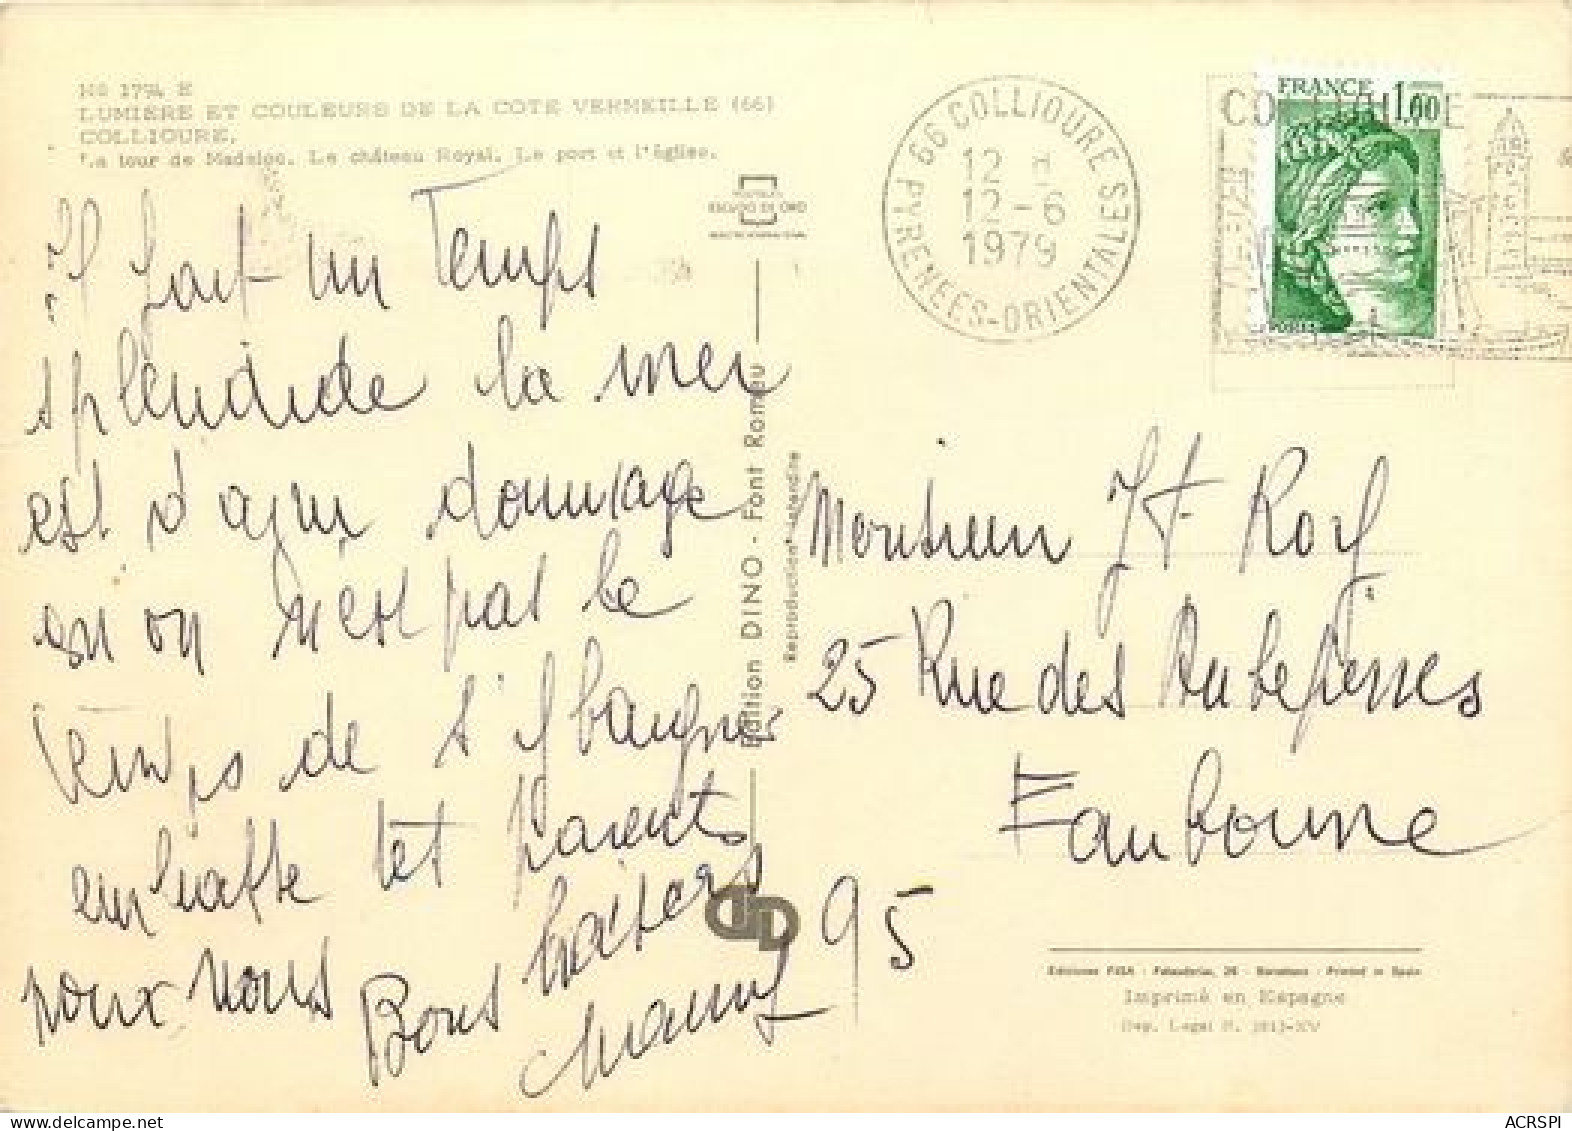 No 1794 E
LUMIERE ET COULEURS DE LA COTE VERMEILLE (66)
COLLIOURE.
La tour de Madeloc. Le château Royal. Le port et l'église.
ESCUDO DE ORO
66 COLLIOURE
PYRENEES-ORIENTALES
12 H
12-6
1979
FRANCE 1,00
il fait un Temps
splendide la mer
est d'azur dommage
qu'on n'est pas le
temps de s'y baigner
embrasse tes parents
pour nous Bons baisers
Mamy
Edition DINO - Font Romeu
Reproduction interdite
Monsieur J F Roy
25 Rue des Aubepines
Eaubonne
95
Ediciones FISA - Palaudarias, 26 - Barcelona - Printed in Spain
Imprimé en Espagne
Dep. Legal B.
ACRSPI
www.delcampe.net